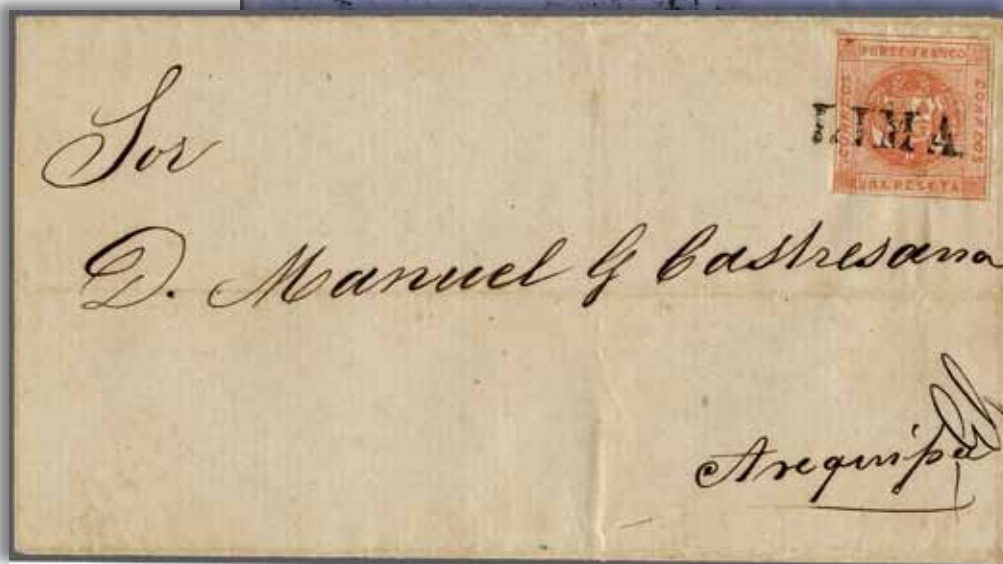 PORTE FRANCO
CORREOS
CORREOS
UNA PESETA
LIMA
Sor
D. Manuel G Castresana
Arequipa